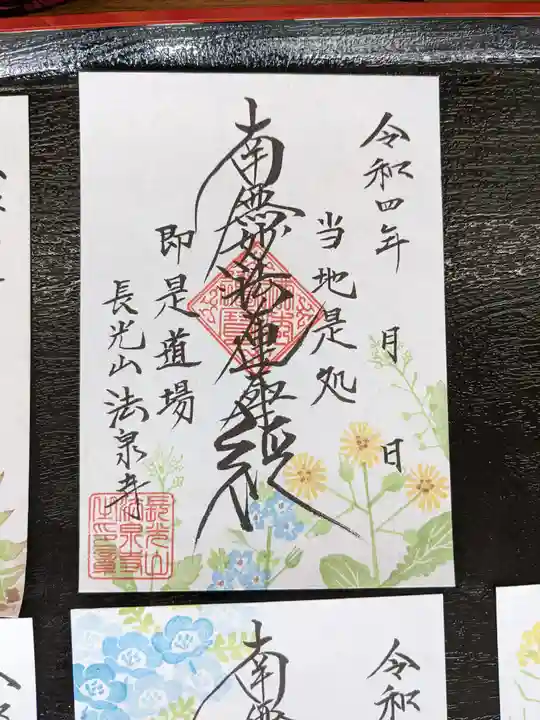 令和四年 月 日
当地是処
南無妙法蓮華経
即是道場
長光山法泉寺
長光山
法泉寺
南無
令和